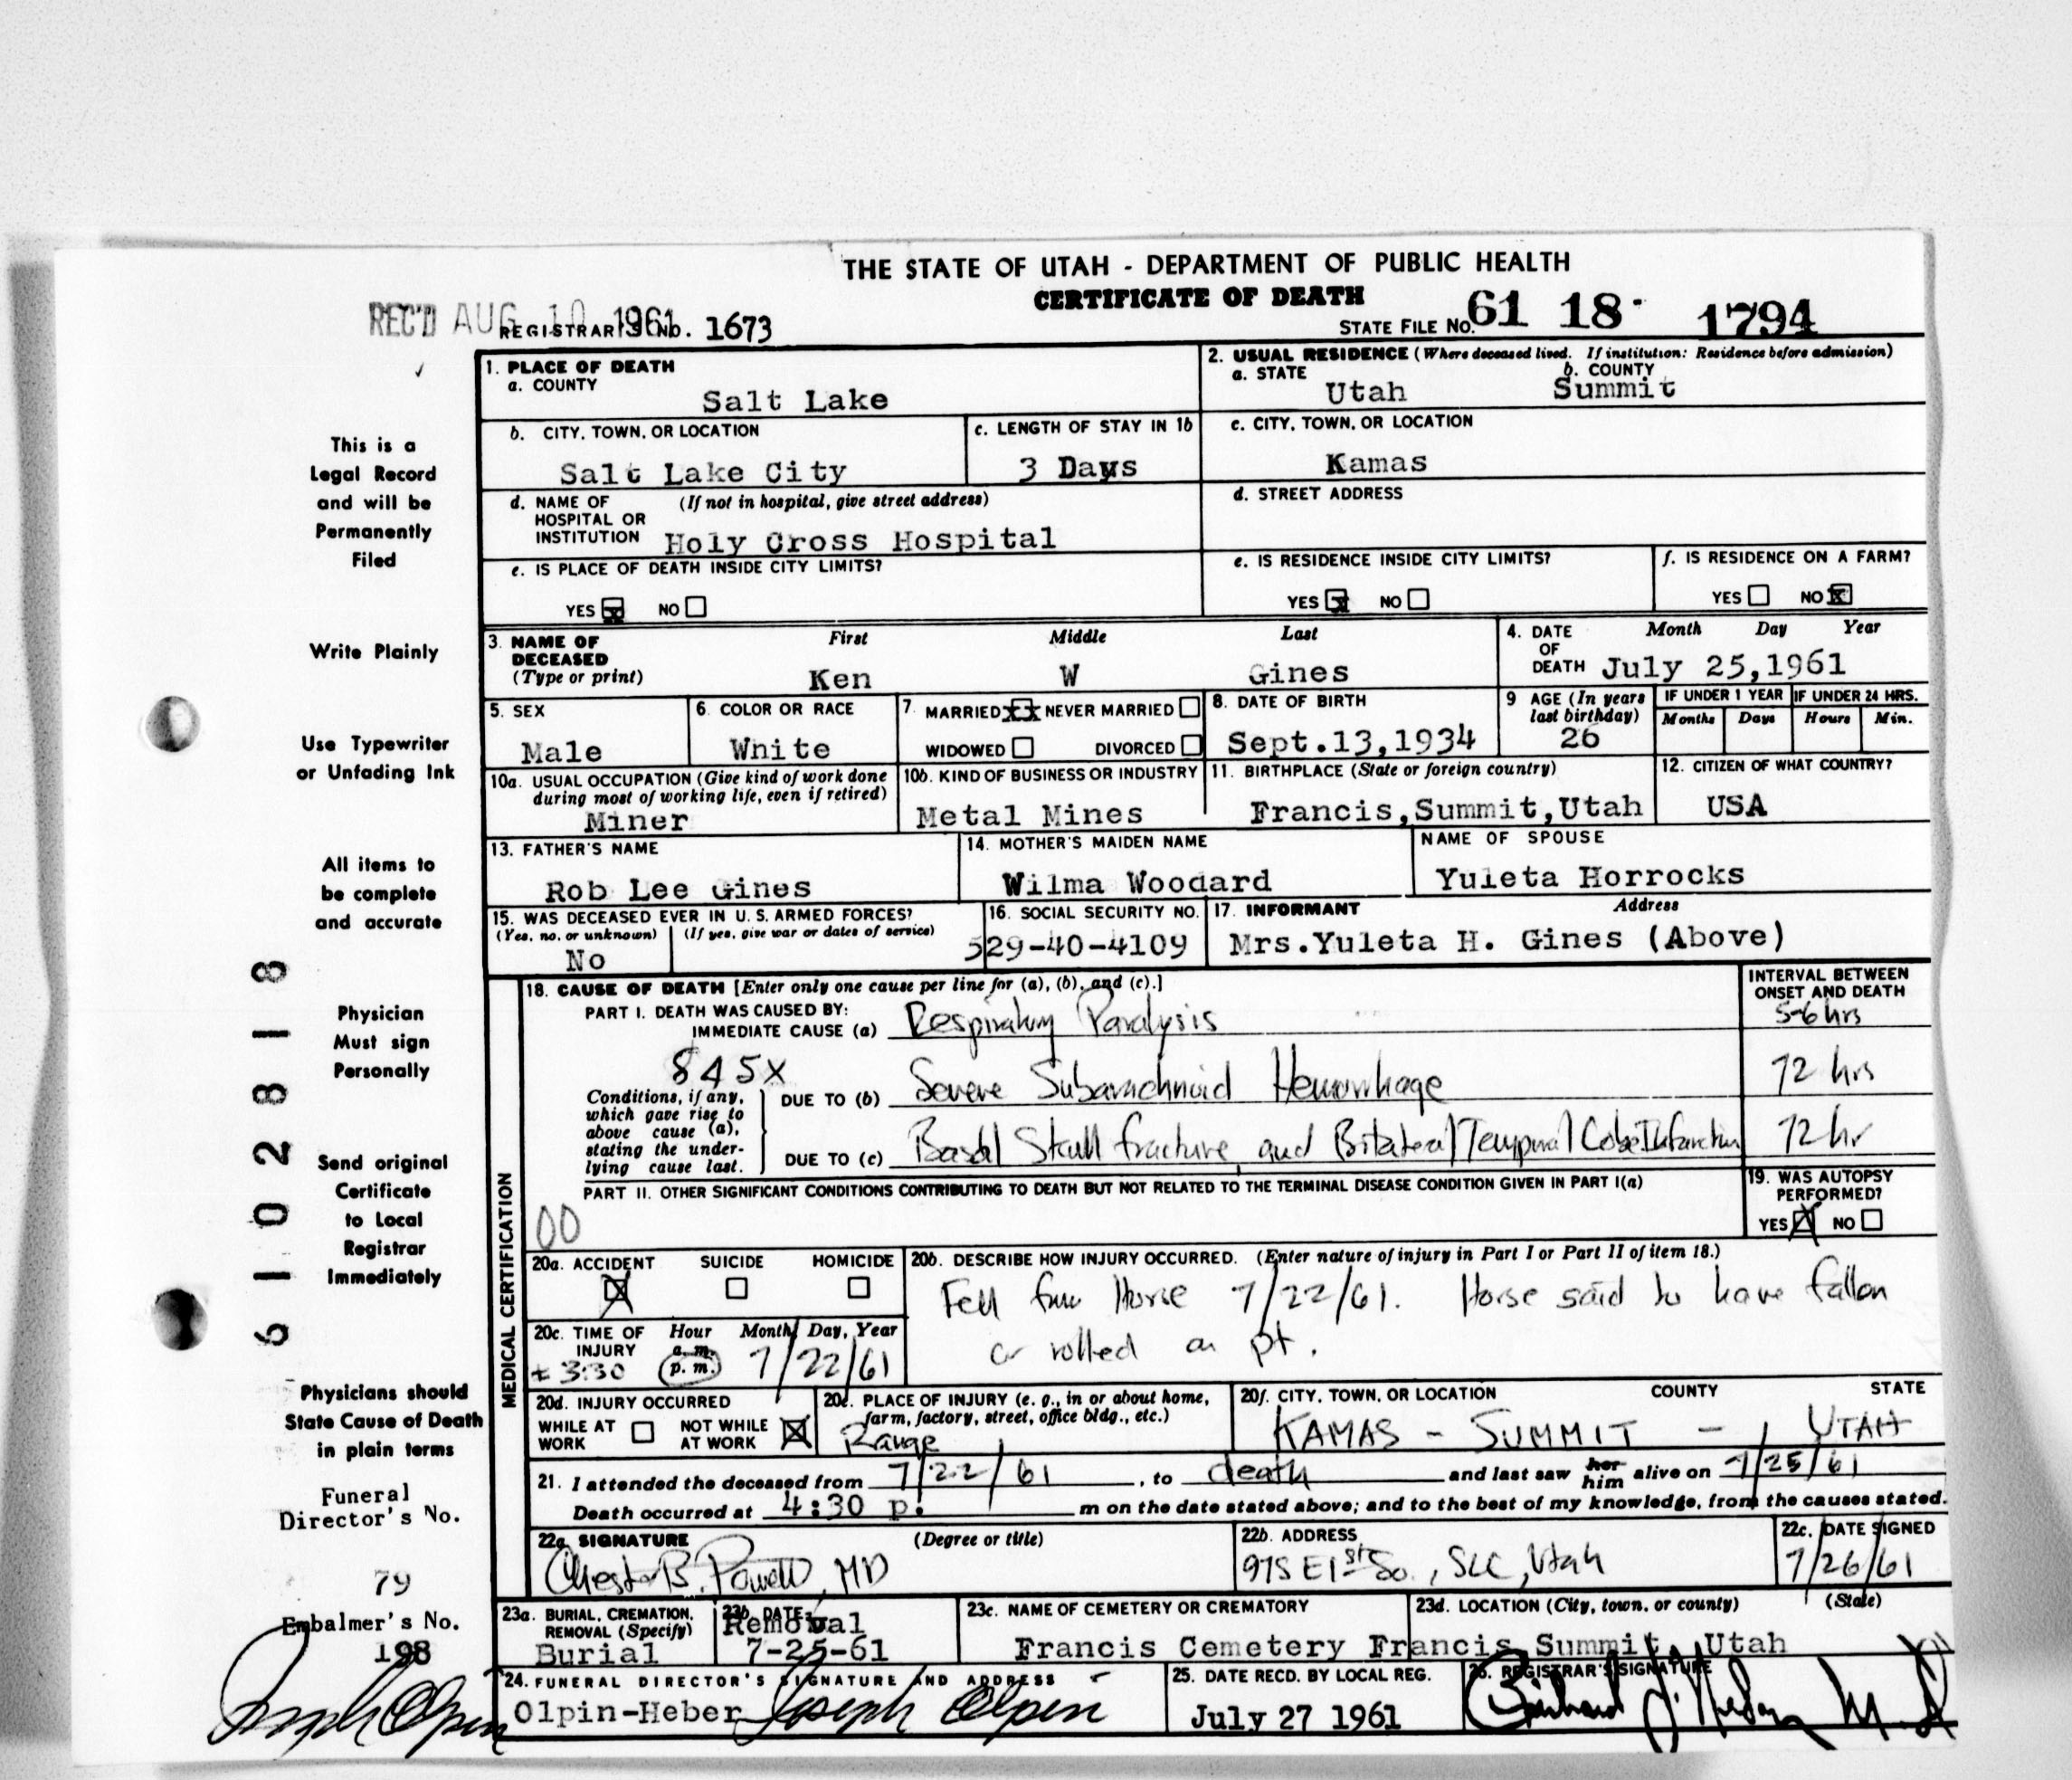 THE STATE OF UTAH - DEPARTMENT OF PUBLIC HEALTH
CERTIFICATE OF DEATH
REC'D AUG 10 1961
REGISTRAR'S NO. 1673
STATE FILE NO. 61 18 1794
1. PLACE OF DEATH
a. COUNTY
Salt Lake
2. USUAL RESIDENCE (Where deceased lived. If institution: Residence before admission)
a. STATE b. COUNTY
Utah Summit
b. CITY, TOWN, OR LOCATION
Salt Lake City
c. LENGTH OF STAY IN 1b
3 Days
c. CITY, TOWN, OR LOCATION
Kamas
d. NAME OF HOSPITAL OR INSTITUTION (If not in hospital, give street address)
Holy Cross Hospital
d. STREET ADDRESS
e. IS PLACE OF DEATH INSIDE CITY LIMITS?
YES x NO
e. IS RESIDENCE INSIDE CITY LIMITS?
YES x NO
f. IS RESIDENCE ON A FARM?
YES NO x
3. NAME OF DECEASED (Type or print)
First Middle Last
Ken W Gines
4. DATE OF DEATH
Month Day Year
July 25,1961
5. SEX
Male
6. COLOR OR RACE
White
7. MARRIED xx NEVER MARRIED
WIDOWED DIVORCED
8. DATE OF BIRTH
Sept.13,1934
9 AGE (In years last birthday)
26
IF UNDER 1 YEAR
Months Days
IF UNDER 24 HRS.
Hours Min.
10a. USUAL OCCUPATION (Give kind of work done during most of working life, even if retired)
Miner
10b. KIND OF BUSINESS OR INDUSTRY
Metal Mines
11. BIRTHPLACE (State or foreign country)
Francis,Summit,Utah
12. CITIZEN OF WHAT COUNTRY?
USA
13. FATHER'S NAME
Rob Lee Gines
14. MOTHER'S MAIDEN NAME
Wilma Woodard
NAME OF SPOUSE
Yuleta Horrocks
15. WAS DECEASED EVER IN U. S. ARMED FORCES?
(Yes, no, or unknown) (If yes, give war or dates of service)
No
16. SOCIAL SECURITY NO.
529-40-4109
17. INFORMANT Address
Mrs.Yuleta H. Gines (Above)
MEDICAL CERTIFICATION
18. CAUSE OF DEATH [Enter only one cause per line for (a), (b), and (c).]
INTERVAL BETWEEN ONSET AND DEATH
PART I. DEATH WAS CAUSED BY:
IMMEDIATE CAUSE (a) Respiratory Paralysis 5-6 hrs
845X
Conditions, if any, which gave rise to above cause (a), stating the underlying cause last.
DUE TO (b) Severe Subarachnoid Hemorrhage 72 hrs
DUE TO (c) Basal Skull fracture and Bilateral Temporal Lobe Infarction 72 hr
PART II. OTHER SIGNIFICANT CONDITIONS CONTRIBUTING TO DEATH BUT NOT RELATED TO THE TERMINAL DISEASE CONDITION GIVEN IN PART I(a)
00
19. WAS AUTOPSY PERFORMED?
YES X NO
20a. ACCIDENT SUICIDE HOMICIDE
X
20b. DESCRIBE HOW INJURY OCCURRED. (Enter nature of injury in Part I or Part II of item 18.)
Fell from Horse 7/22/61. Horse said to have fallen
or rolled on pt.
20c. TIME OF INJURY Hour a. m. p. m. Month, Day, Year
± 3:30 7/22/61
20d. INJURY OCCURRED
WHILE AT WORK NOT WHILE AT WORK X
20e. PLACE OF INJURY (e. g., in or about home, farm, factory, street, office bldg., etc.)
Range
20f. CITY, TOWN, OR LOCATION COUNTY STATE
KAMAS - SUMMIT - UTAH
21. I attended the deceased from 7/22/61, to death and last saw her him alive on 7/25/61
Death occurred at 4:30 p. m on the date stated above; and to the best of my knowledge, from the causes stated.
22a. SIGNATURE (Degree or title)
Chester B. Powell, MD
22b. ADDRESS
975 E 1st So., SLC, Utah
22c. DATE SIGNED
7/26/61
23a. BURIAL, CREMATION, REMOVAL (Specify)
Burial
23b. DATE
Removal
7-25-61
23c. NAME OF CEMETERY OR CREMATORY
Francis Cemetery
23d. LOCATION (City, town, or county) (State)
Francis Summit, Utah
24. FUNERAL DIRECTOR'S SIGNATURE AND ADDRESS
Olpin-Heber Joseph Olpin
25. DATE RECD. BY LOCAL REG.
July 27 1961
26. REGISTRAR'S SIGNATURE
This is a
Legal Record
and will be
Permanently
Filed
Write Plainly
Use Typewriter
or Unfading Ink
All items to
be complete
and accurate
Physician
Must sign
Personally
Send original
Certificate
to Local
Registrar
Immediately
Physicians should
State Cause of Death
in plain terms
Funeral
Director's No.
79
Embalmer's No.
198
Joseph Olpin
6102818